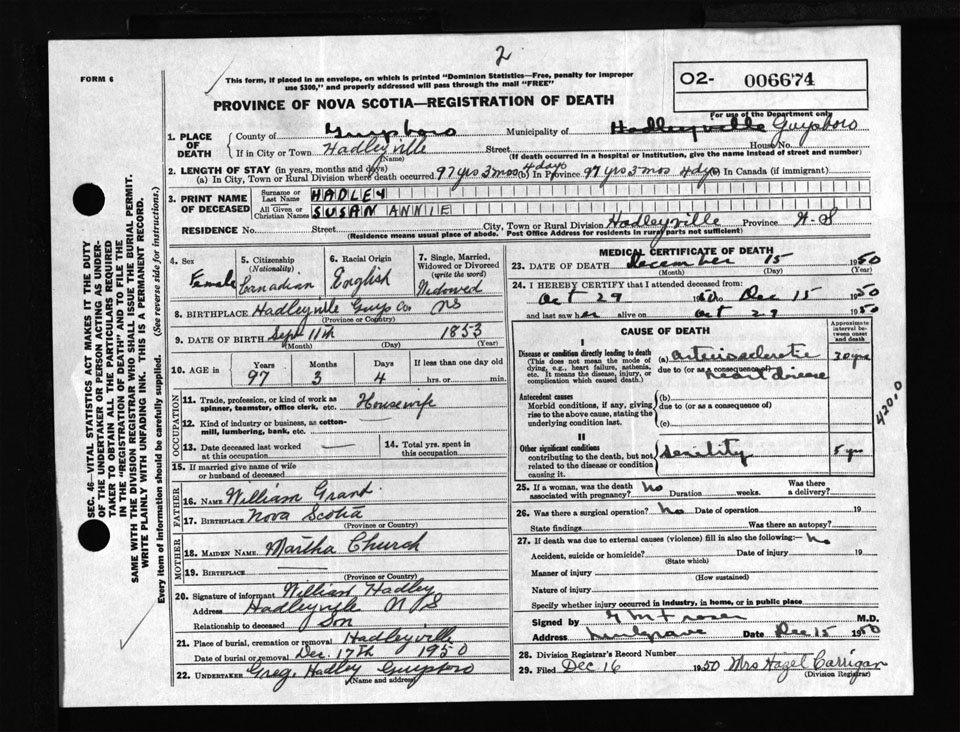 2
FORM 6
This form, if placed in an envelope, on which is printed "Dominion Statistics—Free, penalty for improper
use $300," and properly addressed will pass through the mail "FREE"
O2- 006674
For use of the Department only
PROVINCE OF NOVA SCOTIA—REGISTRATION OF DEATH
1. PLACE OF DEATH { County of Guysboro Municipality of Hadleyville Guysboro
If in City or Town Hadleyville Street House No.
(Name) (If death occurred in a hospital or institution, give the name instead of street and number)
2. LENGTH OF STAY (in years, months and days)
(a) In City, Town or Rural Division where death occurred 97 yrs 3 mos 4 days (b) In Province 97 yrs 3 mos 4 dys (c) In Canada (if immigrant)
3. PRINT NAME OF DECEASED { Surname or Last Name HADLEY
All Given or Christian Names SUSAN ANNIE
RESIDENCE No. Street City, Town or Rural Division Hadleyville Province N-S
(Residence means usual place of abode. Post Office Address for residents in rural parts not sufficient)
4. Sex
Female
5. Citizenship
(Nationality)
Canadian
6. Racial Origin
English
7. Single, Married,
Widowed or Divorced
(write the word)
Widowed
8. BIRTHPLACE Hadleyville Guys Co. NS
(Province or Country)
9. DATE OF BIRTH Sept 11th 1853
(Month) (Day) (Year)
10. AGE in { Years Months Days If less than one day old
97 3 4 hrs. or min.
OCCUPATION
11. Trade, profession, or kind of work as
spinner, teamster, office clerk, etc. Housewife
12. Kind of industry or business, as cotton-
mill, lumbering, bank, etc.
13. Date deceased last worked
at this occupation
14. Total yrs. spent in
this occupation
15. If married give name of wife
or husband of deceased
FATHER
16. NAME William Grant
17. BIRTHPLACE Nova Scotia
(Province or Country)
MOTHER
18. MAIDEN NAME Martha Church
19. BIRTHPLACE
(Province or Country)
20. Signature of informant William Hadley
Address Hadleyville N S
Relationship to deceased Son
21. Place of burial, cremation or removal Hadleyville
Date of burial or removal Dec. 17th 1950
22. UNDERTAKER Greg. Hadley Guysboro
(Name and address)
MEDICAL CERTIFICATE OF DEATH
23. DATE OF DEATH December 15 1950
(Month) (Day) (Year)
24. I HEREBY CERTIFY that I attended deceased from:
Oct 29 1950 to Dec 15 1950
and last saw her alive on Oct 29 1950
CAUSE OF DEATH
Approximate
interval be-
tween onset
and death
I
Disease or condition directly leading to death
(This does not mean the mode of
dying, e.g., heart failure, asthenia,
etc. It means the disease, injury, or
complication which caused death.)
(a) arteriosclerotic 30 yrs
due to (or as a consequence of)
heart disease
Antecedent causes
Morbid conditions, if any, giving
rise to the above cause, stating the
underlying condition last.
(b)
due to (or as a consequence of)
(c)
II
Other significant conditions
contributing to the death, but not
related to the disease or condition
causing it.
senility 5 yrs
420.0
25. If a woman, was the death
associated with pregnancy? No Duration weeks. Was there
a delivery?
26. Was there a surgical operation? No Date of operation 19
State findings Was there an autopsy?
27. If death was due to external causes (violence) fill in also the following:— No
Accident, suicide or homicide? Date of injury 19
(State which)
Manner of injury
(How sustained)
Nature of injury
Specify whether injury occurred in industry, in home, or in public place
Signed by M.D.
Address Mulgrave Date Dec 15 1950
28. Division Registrar's Record Number
29. Filed Dec 16 1950 Mrs Hazel Carrigan
(Division Registrar)
SEC. 46—VITAL STATISTICS ACT MAKES IT THE DUTY
OF THE UNDERTAKER OR PERSON ACTING AS UNDER-
TAKER TO OBTAIN ALL THE PARTICULARS REQUIRED
IN THE "REGISTRATION OF DEATH" AND TO FILE THE
SAME WITH THE DIVISION REGISTRAR WHO SHALL ISSUE THE BURIAL PERMIT.
WRITE PLAINLY WITH UNFADING INK. THIS IS A PERMANENT RECORD.
Every item of information should be carefully supplied. (See reverse side for instructions.)